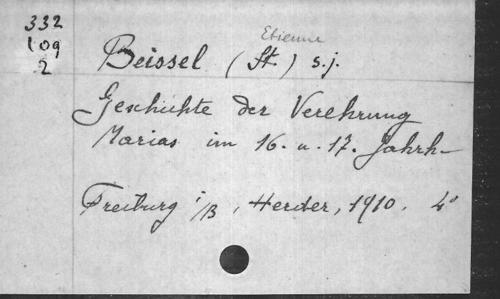 332
109
2
Etienne
Beissel (St.) s.j.
Geschichte der Verehrung
Marias im 16. u. 17. Jahrh-
Freiburg i/B, Herder, 1910. 4°